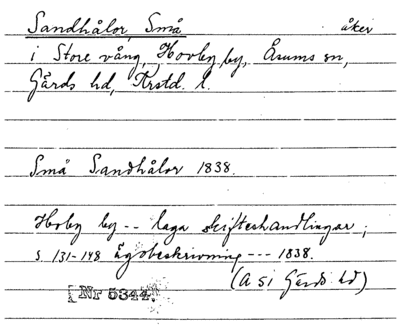 Sandhålor, Små åker
i Store vång, Hovby by, Åsums sn,
Gärds hd, Krstd. l.
Små Sandhålor 1838.
Hoby by -- laga skifteshandlingar;
s. 131-148 ägobeskrivning --- 1838.
(A 51 Gärds hd)
Nr 5344.